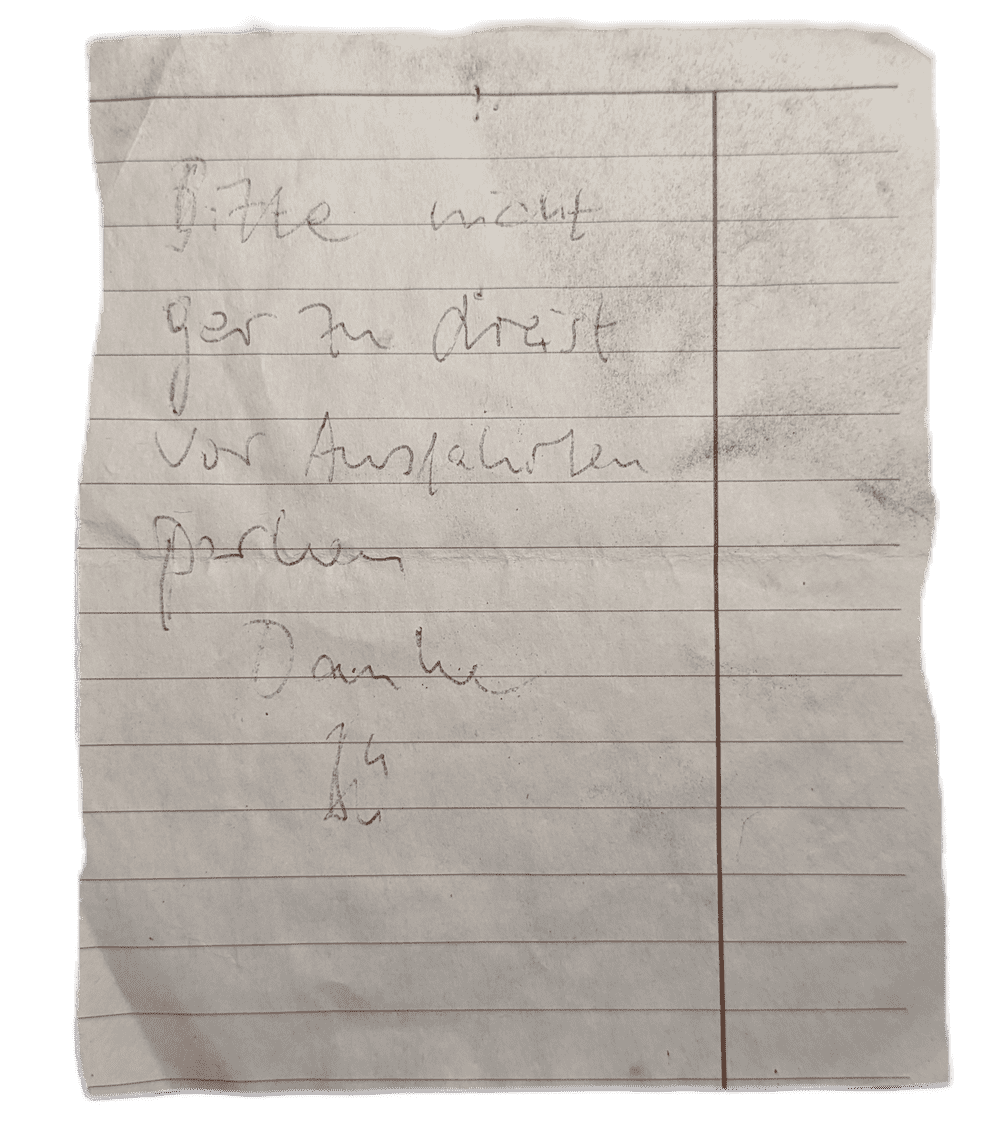 Bitte nicht
gar zu dreist
vor Ausfahrten
parken
Danke